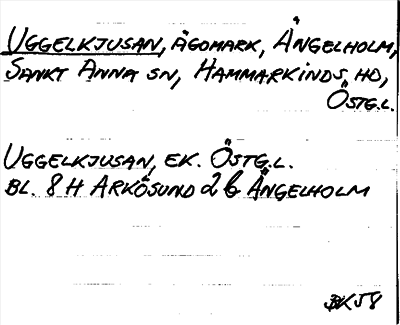 UGGELKJUSAN, ÄGOMARK, ÄNGELHOLM,
SANKT ANNA SN, HAMMARKINDS HD,
ÖSTG.L.
UGGELKJUSAN, EK. ÖSTG.L.
BL. 8 H ARKÖSUND 2 b ÄNGELHOLM
58